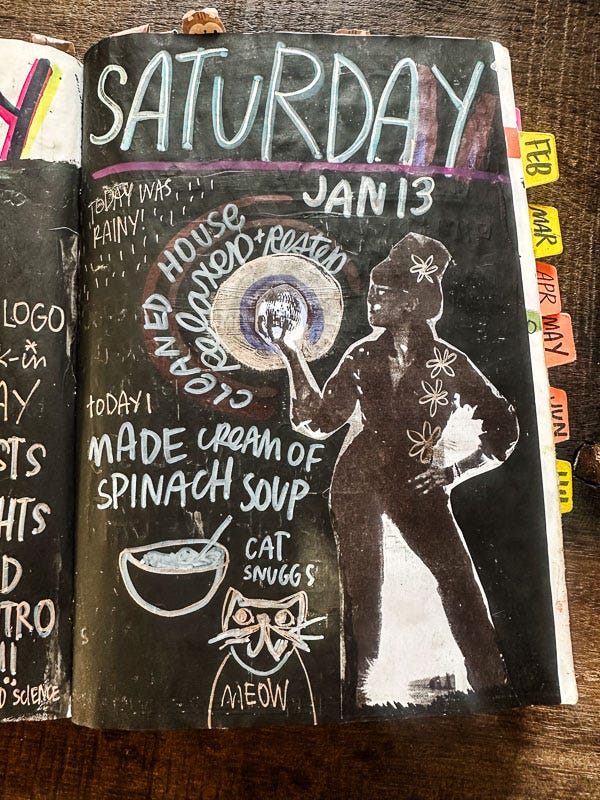 Y
LOGO
K-in
AY
STS
HTS
D
TRO
!!
D SCIENCE
SATURDAY
JAN 13
TODAY WAS
RAINY!
CLEANED HOUSE
Relaxed + Rested
TODAY I
MADE CREAM OF
SPINACH SOUP
CAT
SNUGGS
MEOW
FEB
MAR
APR
MAY
JUN